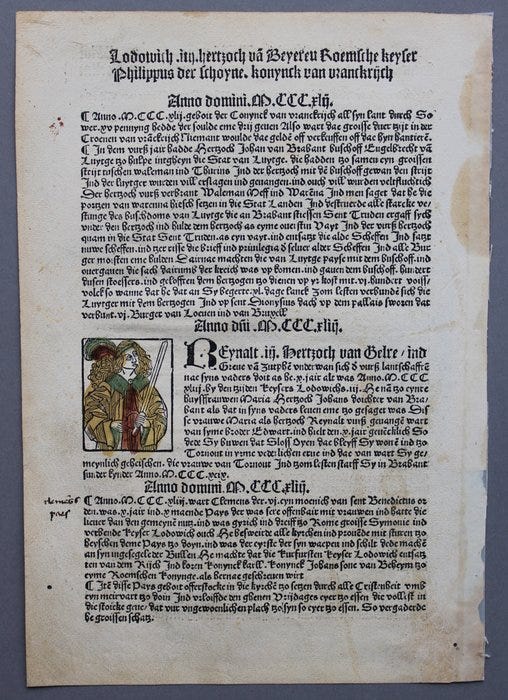 Lodowich .iiij. hertzoch vā Beyeren Roemsche keyser
Philippus der schoyne. konynck van vranckrijch
Anno domini. M.CCC.xlij.
¶ Anno. M.CCC.xlij. geboit der Conynck van vranckrijch all syn lant durch So
wer .xv pennyng hedde der soulde eme drij geuen Also wart dae groisse duer tzijt in der
Croenen van vrāckrijch Niemant woulde dae geldē off verkeuffen off dae hyn hantierē.
¶ In dem vurß jair hadde Hertzoch Johan van Brabant buschoff Engelbrecht vā
Luytge tzo hulpe intgheyn die Stat van Luytge. die hadden tzo samen eyn groissen
strijt tuschen waleman ind Thurino Ind der hertzoch mit dē buschoff gewan den strijt
Ind der luytger wurden vill erslagen ind gevangen. ind ouch vill wurden veltfluchtich
Der hertzoch vurß verbrant Waleman Oeff ind Warēma Ind men saget dat he die
portzen van waremma hiesch setzen in die Stat Landen Ind destruerde alle starcke ve-
stunge des buschdoms van Luytge die an Brabant stiessen Sent Truden ergaff sych
vnder den hertzoch ind hulde dem hertzoch as eyme ouersten Vayt Ind der vurß hertzoch
quam in die Stat Sent Truden. as eyn vayt. ind entsatzt die alde Scheffen Ind satzt
nuwe scheffen. ind tzer risse die brieff ind priuilegia d seluer alder Scheffen Ind alle Bur
ger moisten eme hulden Dairnae machten die van Luytge payse mit dem buschoff. ind
ouergauen die sach dairumb der kreich was vp komen. ind gauen dem buschoff. hundert
duser stoessers. ind geloifften dem hertzogen tzo dienen vp yr kost mit .vj. hundert voiss/
volck so wanne dat he dat an Sy begerte .xl. dage lanck Zom lesten verbundē sich die
Luytge mit dem hertzogen Ind vp sent Dionysius dach vp dem pallais sworen dat
verbunt .vj. Burger van Loeuen ind van Bruxell
Anno dñi. M.CCC.xliij.
REynalt .iij. Hertzoch van Gelre / ind
Greue vā Zutphē vnder wan sich d vurß lantschaffrē
nae syns vaders doit as he .x. jair alt was Anno. M.CCC
xliij. by den tzijden keysers Lodowichs .iij. He nā tzo eynre
huysfrauwen Maria Hertzoch Johans dochter van Bra/
bant als dat in syns vaders leuen eme tzo gesaget was Dis
se vrauwe Maria als hertzoch Reynalt vurß gevangē wart
van syme broder Edwart. ind hielt den .x. jair gevēcklich So
dede Sy buwen dat Sloss Oyen dae bleyff Sy wonē ind tzo
Tornout in yrme vederlichen erue ind dae van wart Sy ge-
meynlich geheischen. die vrauwe van Tornout Ind zom lesten starff Sy in Brabant
sunder kynder Anno. M.CCC.xcix.
Anno domini. M.CCC.xliij.
Clemens
paes
¶ Anno. M.CCC.xliij. wart Clemens der .vj. eyn moenich van sent Benedictus or
den. was .x. jair. ind .x maende Pays der was sere offenbair mit vrauwen ind hatte die
lieuer dan den gemeynē nutz. ind was gyrich ind dreiff tzo Rome groisse Symonie ind
verbende keyser Lodowich ouch He beswerde alle kyrchen ind prouēde mit sturen tzo
heyschen deme Pays tzo doyn. ind was der eyrste der syn waepen ind schilt dede machē
an syn ingesegele der Bullen He machde dat die kurfursten keyser Lodowich entsatz
ten van dem Rijch Ind koren konynck karll. konynck Johans sone van Beheym tzo
eyme Roemschen konynge. als hernae geschreuen wirt
¶ Itē disse Pays geboit offerstocke in die kyrchē tzo setzen durch alle Cristenheit vmb
eyn meirvart tzo doin Ind vrloiffde den ghenen Vrijdages eyer tzo essen die voll ist in
die stoicke gene / dat vur ungewoenlichen plach tzo syn so eyer tzo essen. So vergaderde
he groissen schatz.